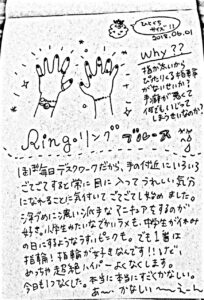 ひとくち
サイズ!!
2018.06.01
Why??
指が太いから
ぴったりくる指輪
がないせいか?
手癖が悪くて
何でもいじって
しまうせいなのか?
Ring。リング
ブルース
ほぼ毎日デスクワークだから、手の付近にいろいろ
ごてごてすると常に目に入ってうれしい気分
になれることに気付いてごてごてし始めました。
シブめのにぶい
派手なマニキュアをするのが
好き。小学生みたいなかわいラメも、中学生が休み
の日にするようなうすいピンクも。でも1番は
指輪!指輪が好きなんです!!!
めっちゃ超絶ハイパーよくなくします。
今日も1つなくした。本当に本当にすごくかなしい。
あ〜かなしい〜